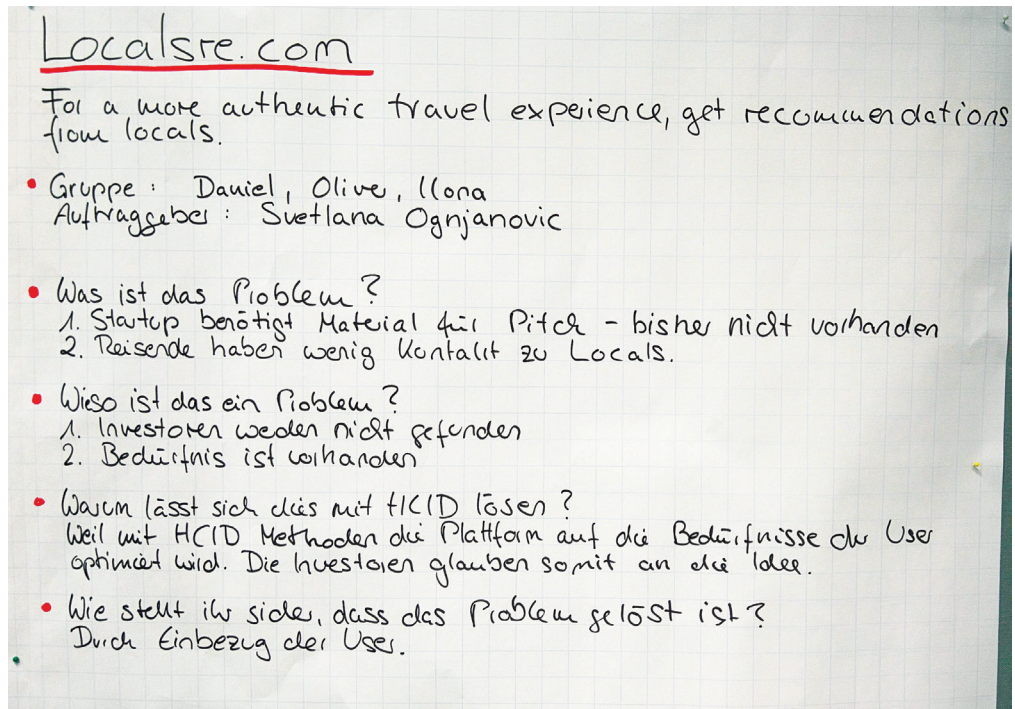 Localsre.com
For a more authentic travel experience, get recommendations
from locals.
• Gruppe: Daniel, Olive, Ilona
Auftraggeber: Svetlana Ognjanovic
• Was ist das Problem?
1. Startup benötigt Material für Pitch - bisher nicht vorhanden
2. Reisende haben wenig Kontakt zu Locals.
• Wieso ist das ein Problem?
1. Investoren werden nicht gefunden
2. Bedürfnis ist vorhanden
• Warum lässt sich dies mit HCID lösen?
Weil mit HCID Methoden die Plattform auf die Bedürfnisse der User
optimiert wird. Die Investoren glauben somit an die Idee.
• Wie stellt ihr sicher, dass das Problem gelöst ist?
Durch Einbezug der User.